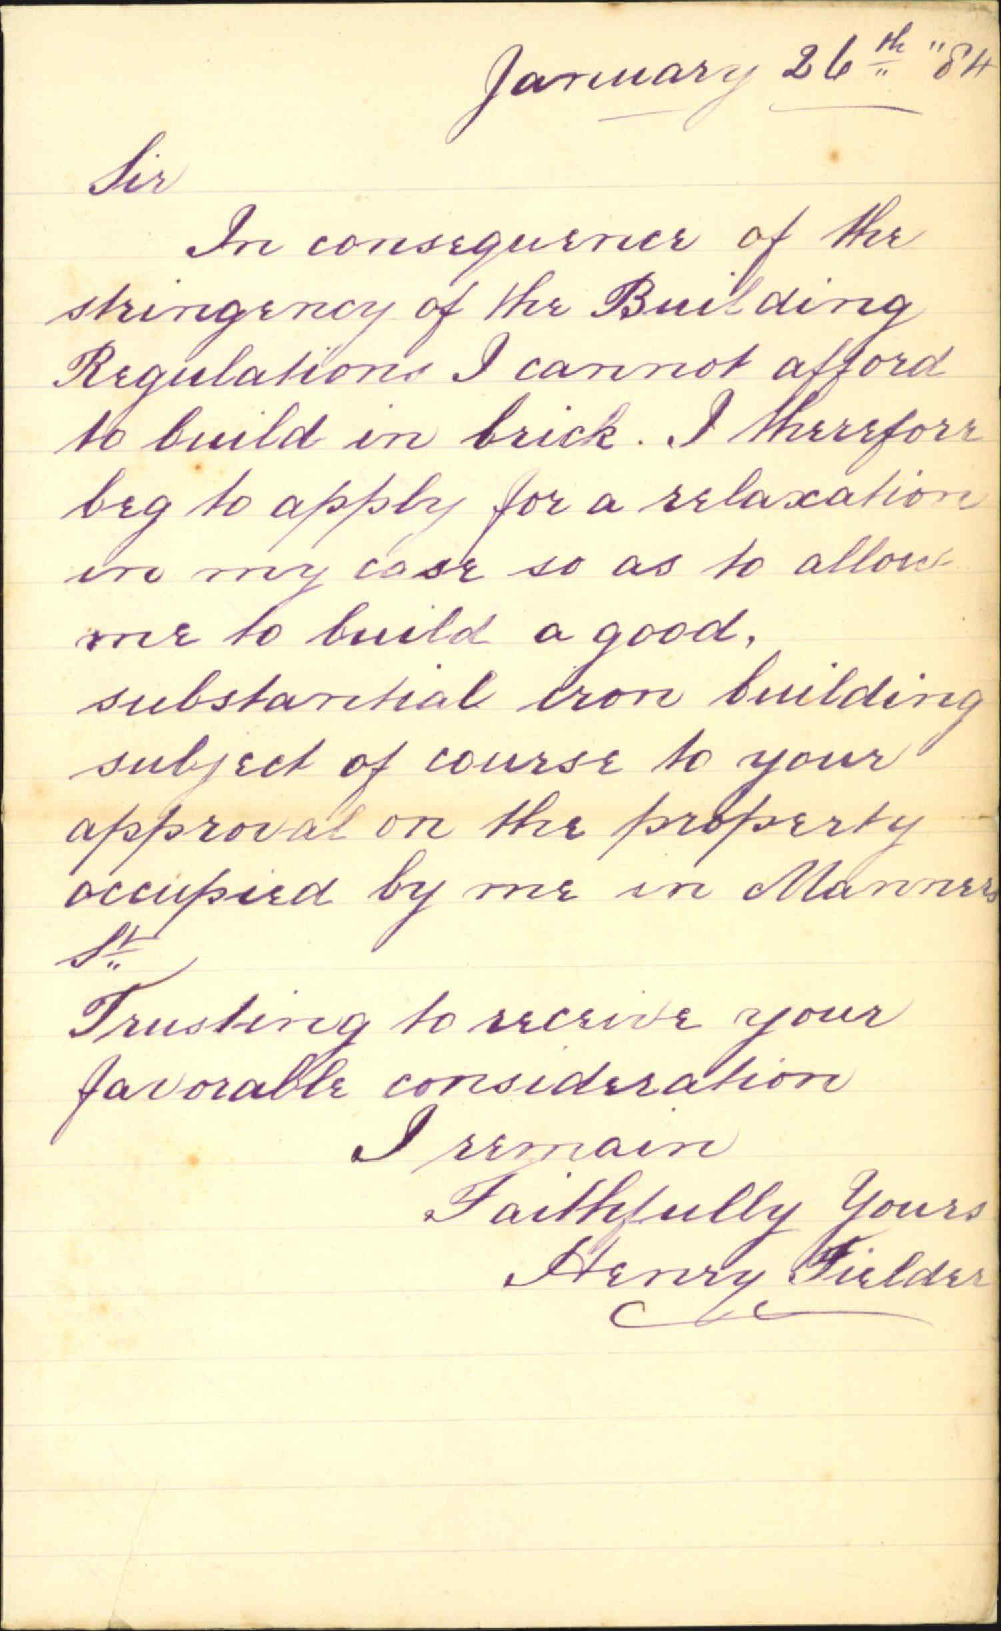 January 26th "84
Sir
In consequence of the
stringency of the Building
Regulations I cannot afford
to build in brick. I therefore
beg to apply for a relaxation
in my case so as to allow
me to build a good,
substantial iron building
subject of course to your
approval on the property
occupied by me in Manners
St
Trusting to receive your
favorable consideration
I remain
Faithfully Yours
Henry Fielder